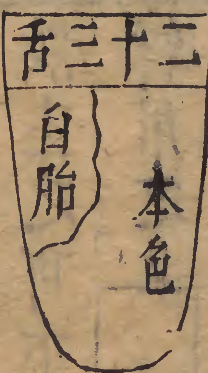 二十三舌
本色
白胎